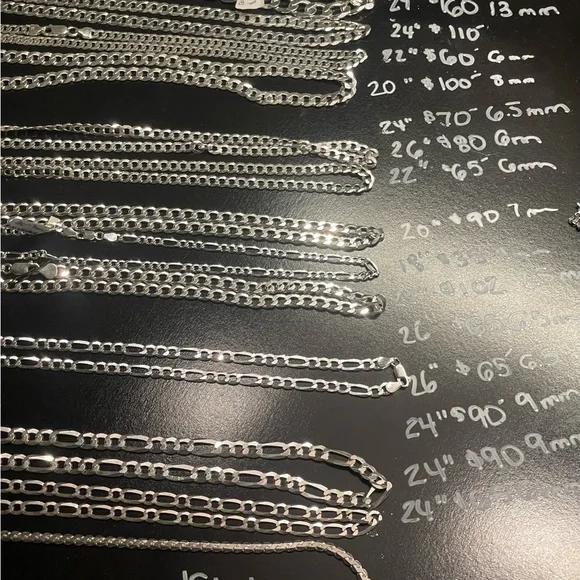 $160 13 mm
24" $110
22" $60 6mm
20" $100 8mm
24" $70 6.5mm
26" $80 6m
22" $65 6mm
20" $90 7m
18" $35
26"
26" $65 6.5
24" $90 9mm
24" $90 9mm
24"